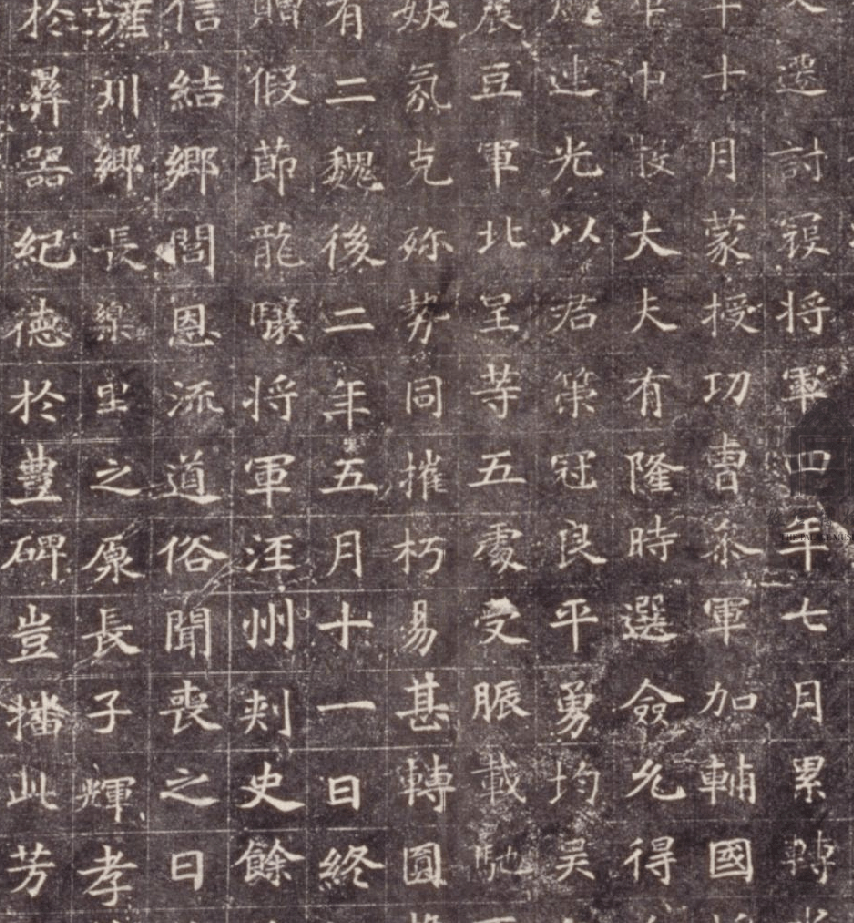 遷討寇将軍四年七月累轉
十月蒙授功曹叅軍加輔國
中散大夫有隆時選僉允得
連光以君策冠良平勇均吴
豆軍北呈等五處受脤載馳
氛克殄勢同摧朽易甚轉圓
有二魏後二年五月十一日終
贈假節龍驤将軍洼州刾史餘
信結鄉閭恩流道俗聞喪之日
川鄉長樂里之原長子輝孝
於彝器紀德於豊碑豈播此芳